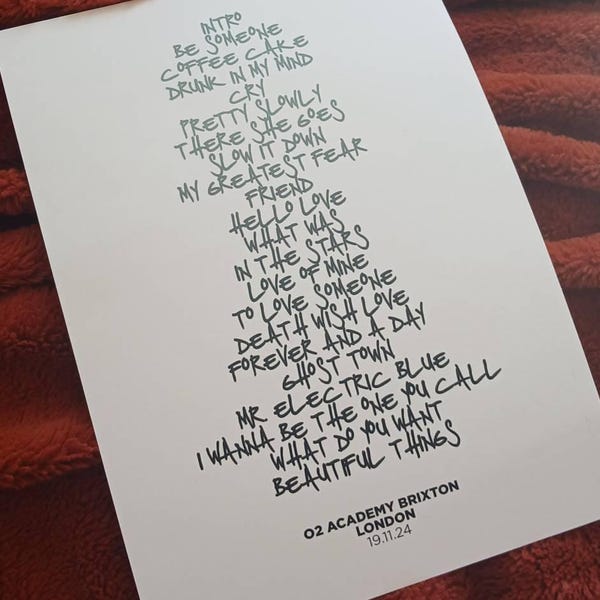 INTRO
BE SOMEONE
COFFEE CAKE
DRUNK IN MY MIND
CRY
PRETTY SLOWLY
THERE SHE GOES
SLOW IT DOWN
MY GREATEST FEAR
FRIEND
HELLO LOVE
WHAT WAS
IN THE STARS
LOVE OF MINE
TO LOVE SOMEONE
DEATH WISH LOVE
FOREVER AND A DAY
GHOST TOWN
MR ELECTRIC BLUE
I WANNA BE THE ONE YOU CALL
WHAT DO YOU WANT
BEAUTIFUL THINGS
O2 ACADEMY BRIXTON
LONDON
19.11.24